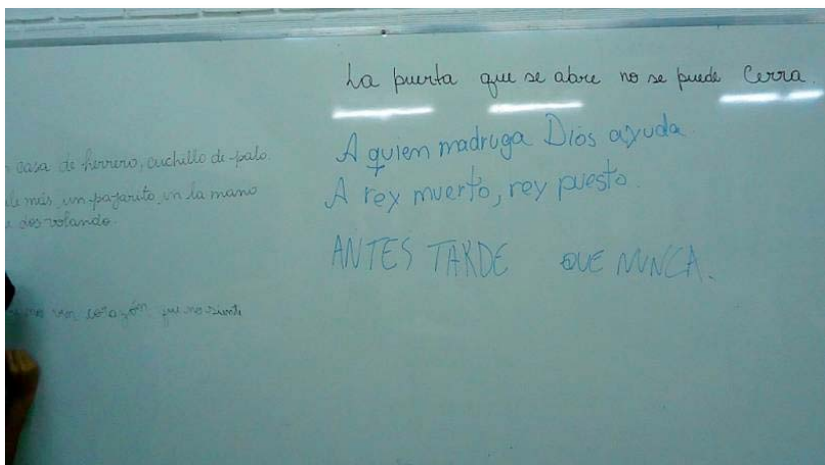 La puerta que se abre no se puede Cerra.
A quien madruga Dios ayuda
A rey muerto, rey puesto.
ANTES TARDE QUE NUNCA.
casa de herrero, cuchillo de palo.
más un pajarito en la mano
dos volando.
corazón que no siente